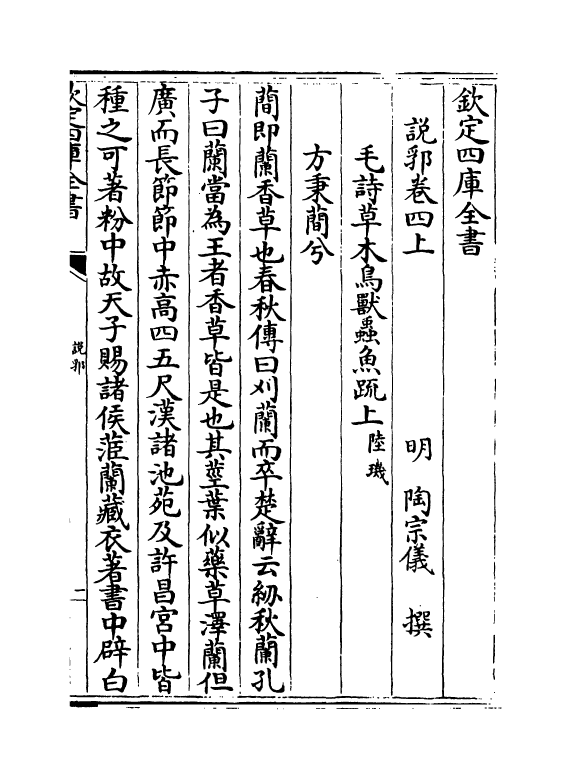 欽定四庫全書
說郛卷四上　明　陶宗儀　撰
毛詩草木鳥獸蟲魚疏上陸璣
方秉蕳兮
蕳即蘭香草也春秋傳曰刈蘭而卒楚辭云紉秋蘭孔
子曰蘭當為王者香草皆是也其莖葉似藥草澤蘭但
廣而長節節中赤高四五尺漢諸池苑及許昌宮中皆
種之可著粉中故天子賜諸侯茝蘭藏衣著書中辟白
欽定四庫全書
說郛
二